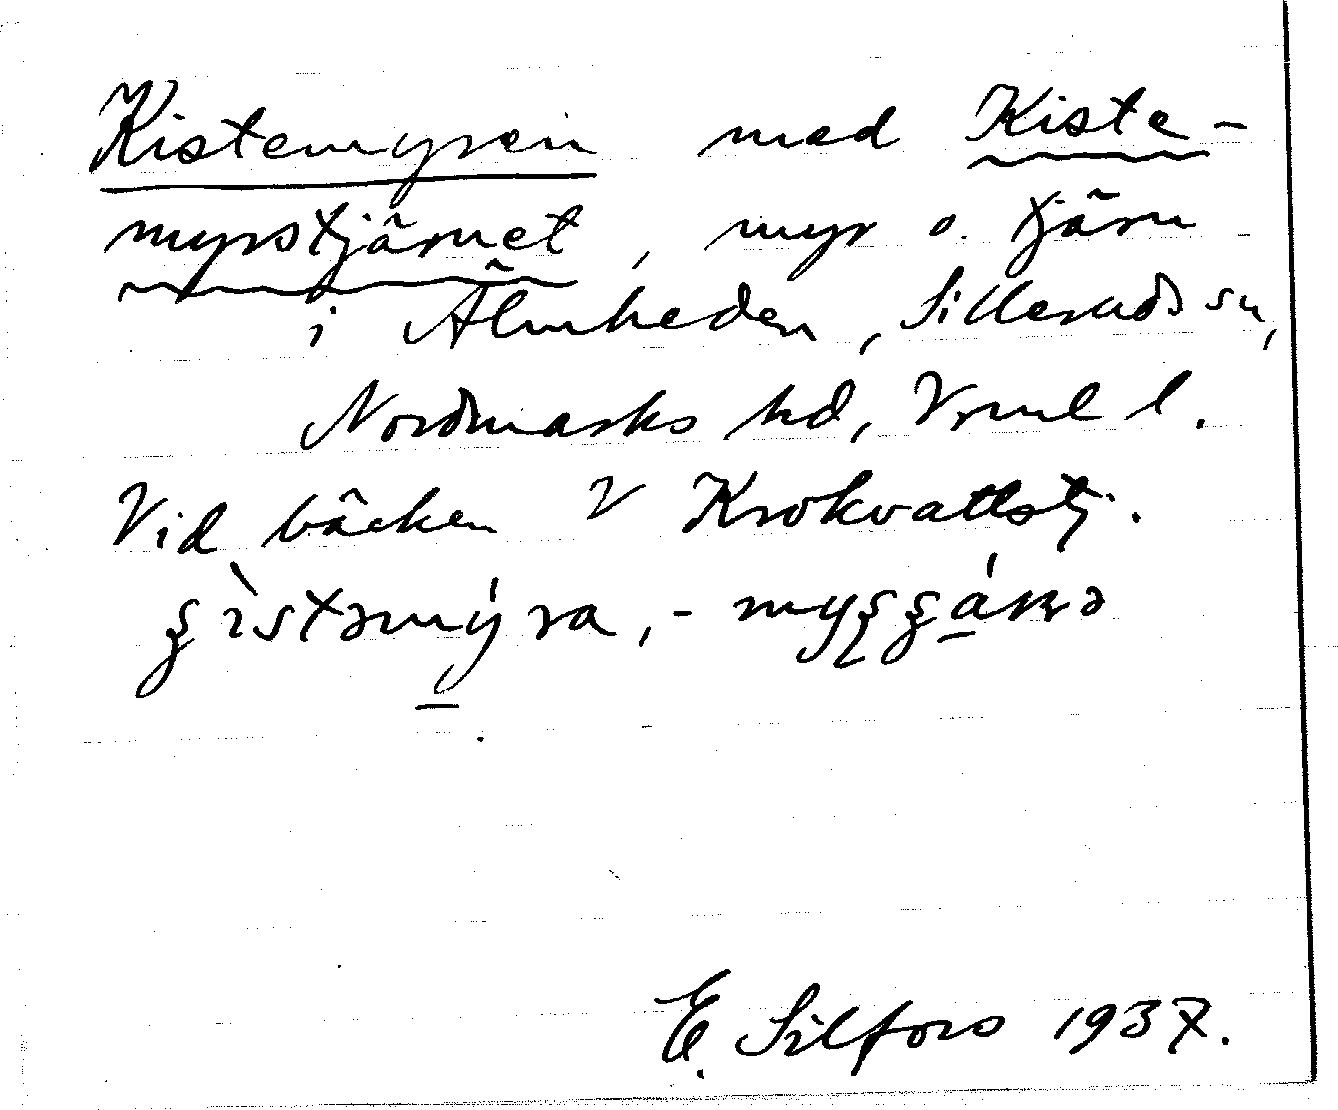 Kistemyren med Kiste-
myrstjärnet, myr o. tjärn
i Älmheden, Sillerud sn,
Nordmarks hd, Vrml l.
Vid bäcken V Krokvattstj.
E. Silfors 1937.